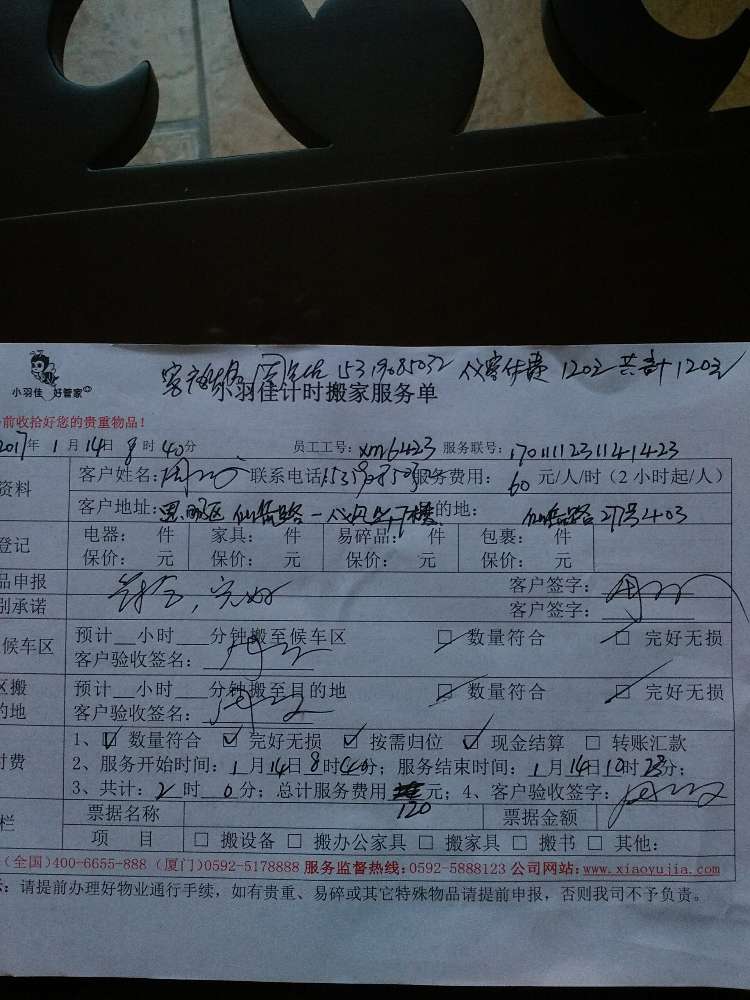 客户 15319085032 付费 120元 共计120元
小羽佳 好管家
小羽佳计时搬家服务单
前收拾好您的贵重物品!
2017年 1月14日8时40分 员工工号: xm6423 服务联号: 17011123114 1423
资料 客户姓名: 联系电话: 服务费用: 60 元/人/时(2小时起/人)
客户地址: 思明区仙岳路一 楼 的地: 仙岳路27号403
登记 电器: 件 家具: 件 易碎品: 件 包裹: 件
保价: 元 保价: 元 保价: 元 保价: 元
品申报 符合,完好 客户签字:
别承诺 客户签字:
候车区 预计__小时__分钟搬至候车区 □ 数量符合 □ 完好无损
客户验收签名:
区搬 预计__小时__分钟搬至目的地 □ 数量符合 □ 完好无损
的地 客户验收签名:
付费 1、☑ 数量符合 ☑ 完好无损 ☑ 按需归位 ☑ 现金结算 □ 转账汇款
2、服务开始时间: 1月14日8时40分; 服务结束时间: 1月14日10时23分;
3、共计: 2时 0分; 总计服务费用 120 元; 4、客户验收签字:
栏 票据名称 票据金额
项 目 □ 搬设备 □ 搬办公家具 □ 搬家具 □ 搬书 □ 其他:
(全国)400-6655-888 (厦门)0592-5178888 服务监督热线:0592-5888123 公司网站:www.xiaoyujia.com
示: 请提前办理好物业通行手续,如有贵重、易碎或其它特殊物品请提前申报,否则我司不予负责。